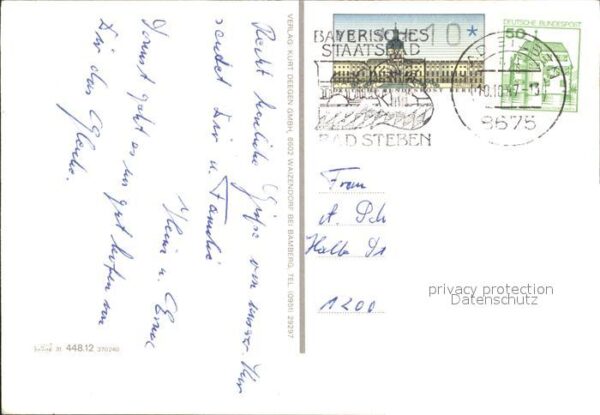 Recht herzliche Grüße von unserer Kur
sendet Dir u. Familie
Heini u. Erna
Sonst geht es uns gut hoffen von
Dir das Gleiche.
VERLAG KURT DEEGEN GMBH, 8602 WAIZENDORF BEI BAMBERG, TEL. (0951) 29297
31 448.12 370240
BAYERISCHES
STAATSBAD
BAD STEBEN
10*
DEUTSCHE BUNDESPOST
50
8675
Frau
A. Sch
Halle Str
1200
privacy protection
Datenschutz